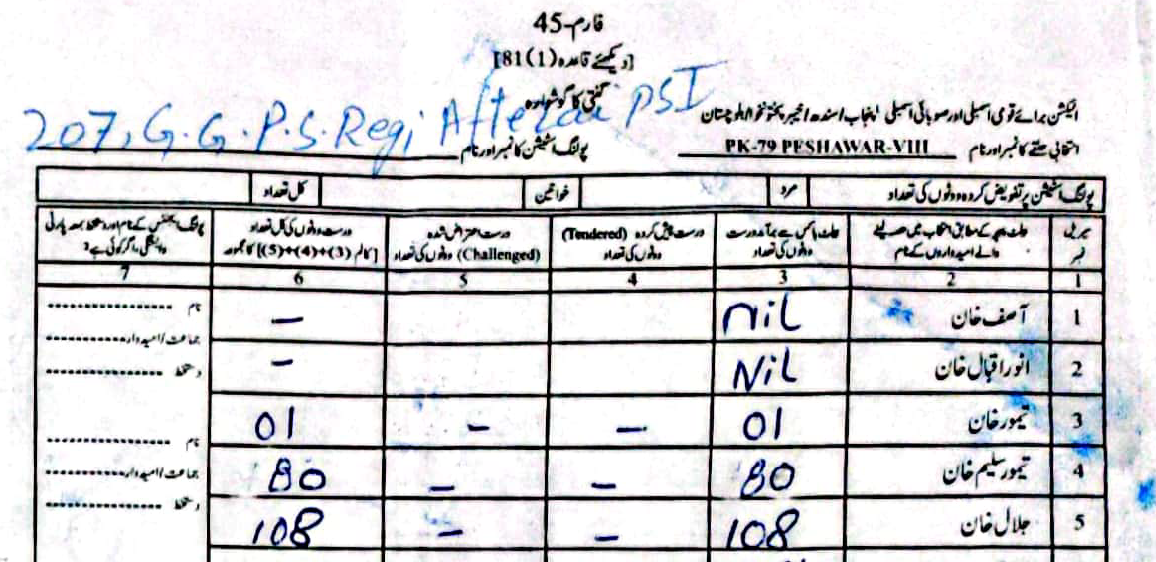 فارم-45
[دیکھئے قاعدہ 81(1)]
گنتی کا گوشوارہ
الیکشن برائے قومی اسمبلی اور صوبائی اسمبلی پنجاب/سندھ/خیبر پختونخوا/بلوچستان
انتخابی حلقے کا نمبر اور نام PK-79 PESHAWAR-VIII پولنگ اسٹیشن کا نمبر اور نام 207, G.G.P.S. Regi Aftezai PSI
پولنگ اسٹیشن پر تفویض کردہ ووٹوں کی تعداد مرد خواتین کل تعداد
سیریل نمبر
والے امیدواروں کے نام
درست ووٹوں کی تعداد
درست پیش کردہ (Tendered) ووٹوں کی تعداد
درست اعتراض شدہ (Challenged) ووٹوں کی تعداد
درست ووٹوں کی کل تعداد [کالم (3)+(4)+(5) کا مجموعہ]
پولنگ ایجنٹس کے نام اور دستخط بمعہ پارٹی وابستگی، اگر کوئی ہے؟
1 2 3 4 5 6 7
1 آصف خان Nil –
2 انور اقبال خان Nil –
3 تیمور خان 01 – – 01
4 تیمور سلیم خان 80 – – 80
5 جلال خان 108 – – 108
نام
جماعت/امیدوار
دستخط
نام
جماعت/امیدوار
دستخط